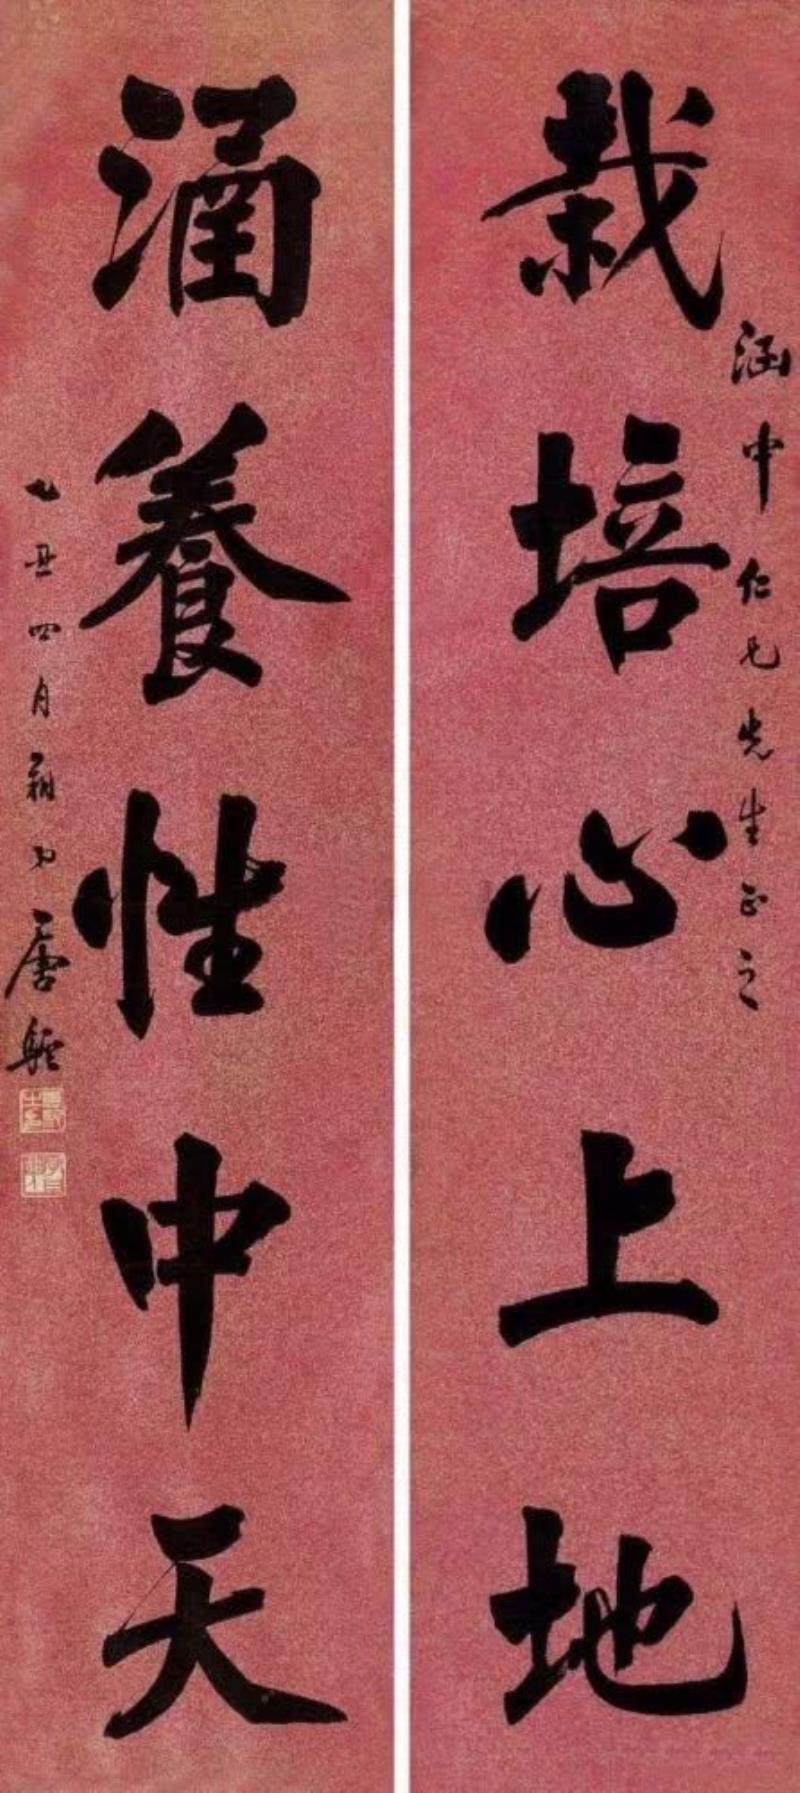 栽培心上地
涵中仁兄先生正之
涵養性中天
乙丑四月 唐駝